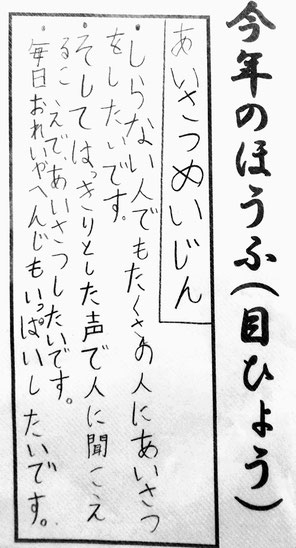 今年のほうふ(目ひょう)
あいさつめいじん
・しらない人でもたくさの人にあいさつ
をしたいです。
・そしてはっきりとした声で人に聞こえ
るこえで、あいさつしたいです。
・毎日おれいやへんじもいっぱいしたいです。